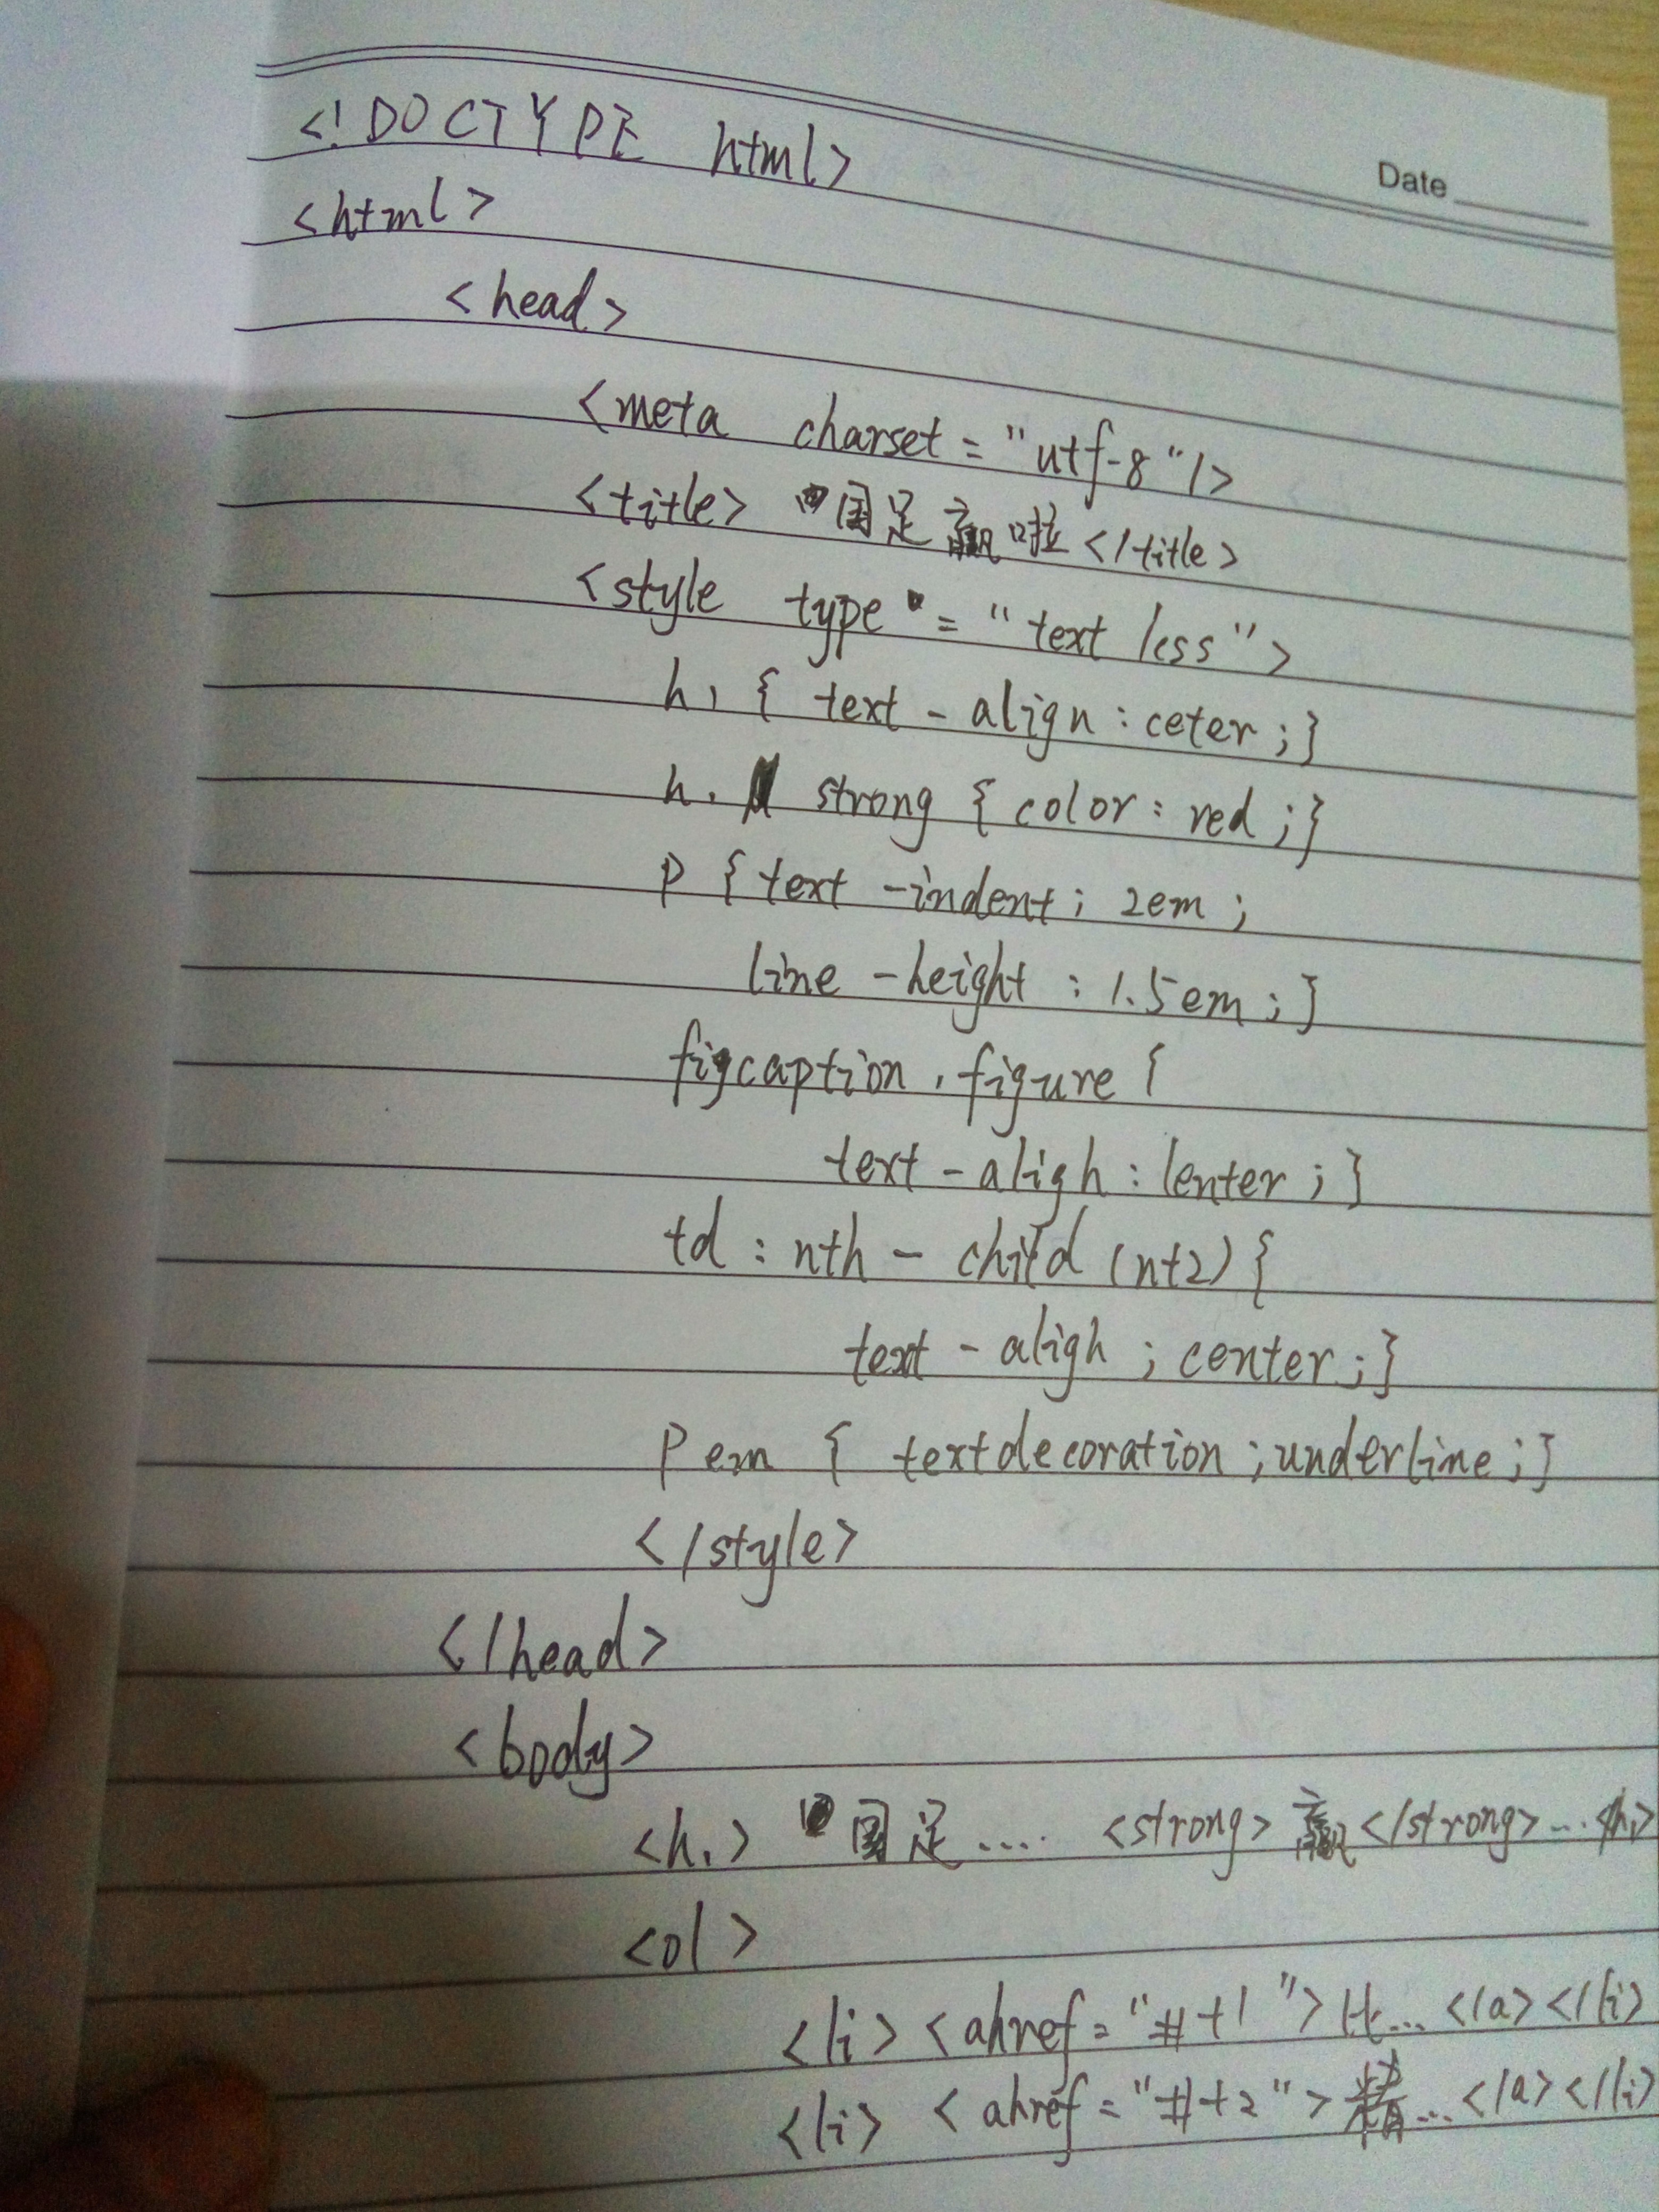 Date
<!DOCTYPE html>
<html>
<head>
<meta charset="utf-8"/>
<title> 国足赢啦</title>
<style type="text/css">
h1 { text-align:ceter;}
h1 strong { color: red ;}
p { text-indent; 2em ;
line-height : 1.5em ; }
figcaption , figure {
text-aligh : center ; }
td : nth-child (n+2) {
text-aligh ; center ; }
p em { textdecoration ; underline ; }
</style>
</head>
<body>
<h1> 国足.... <strong> 赢</strong>...</h1>
<ol>
<li> <ahref="#t1">比...</a></li>
<li> <ahref="#t2">精...</a></li>